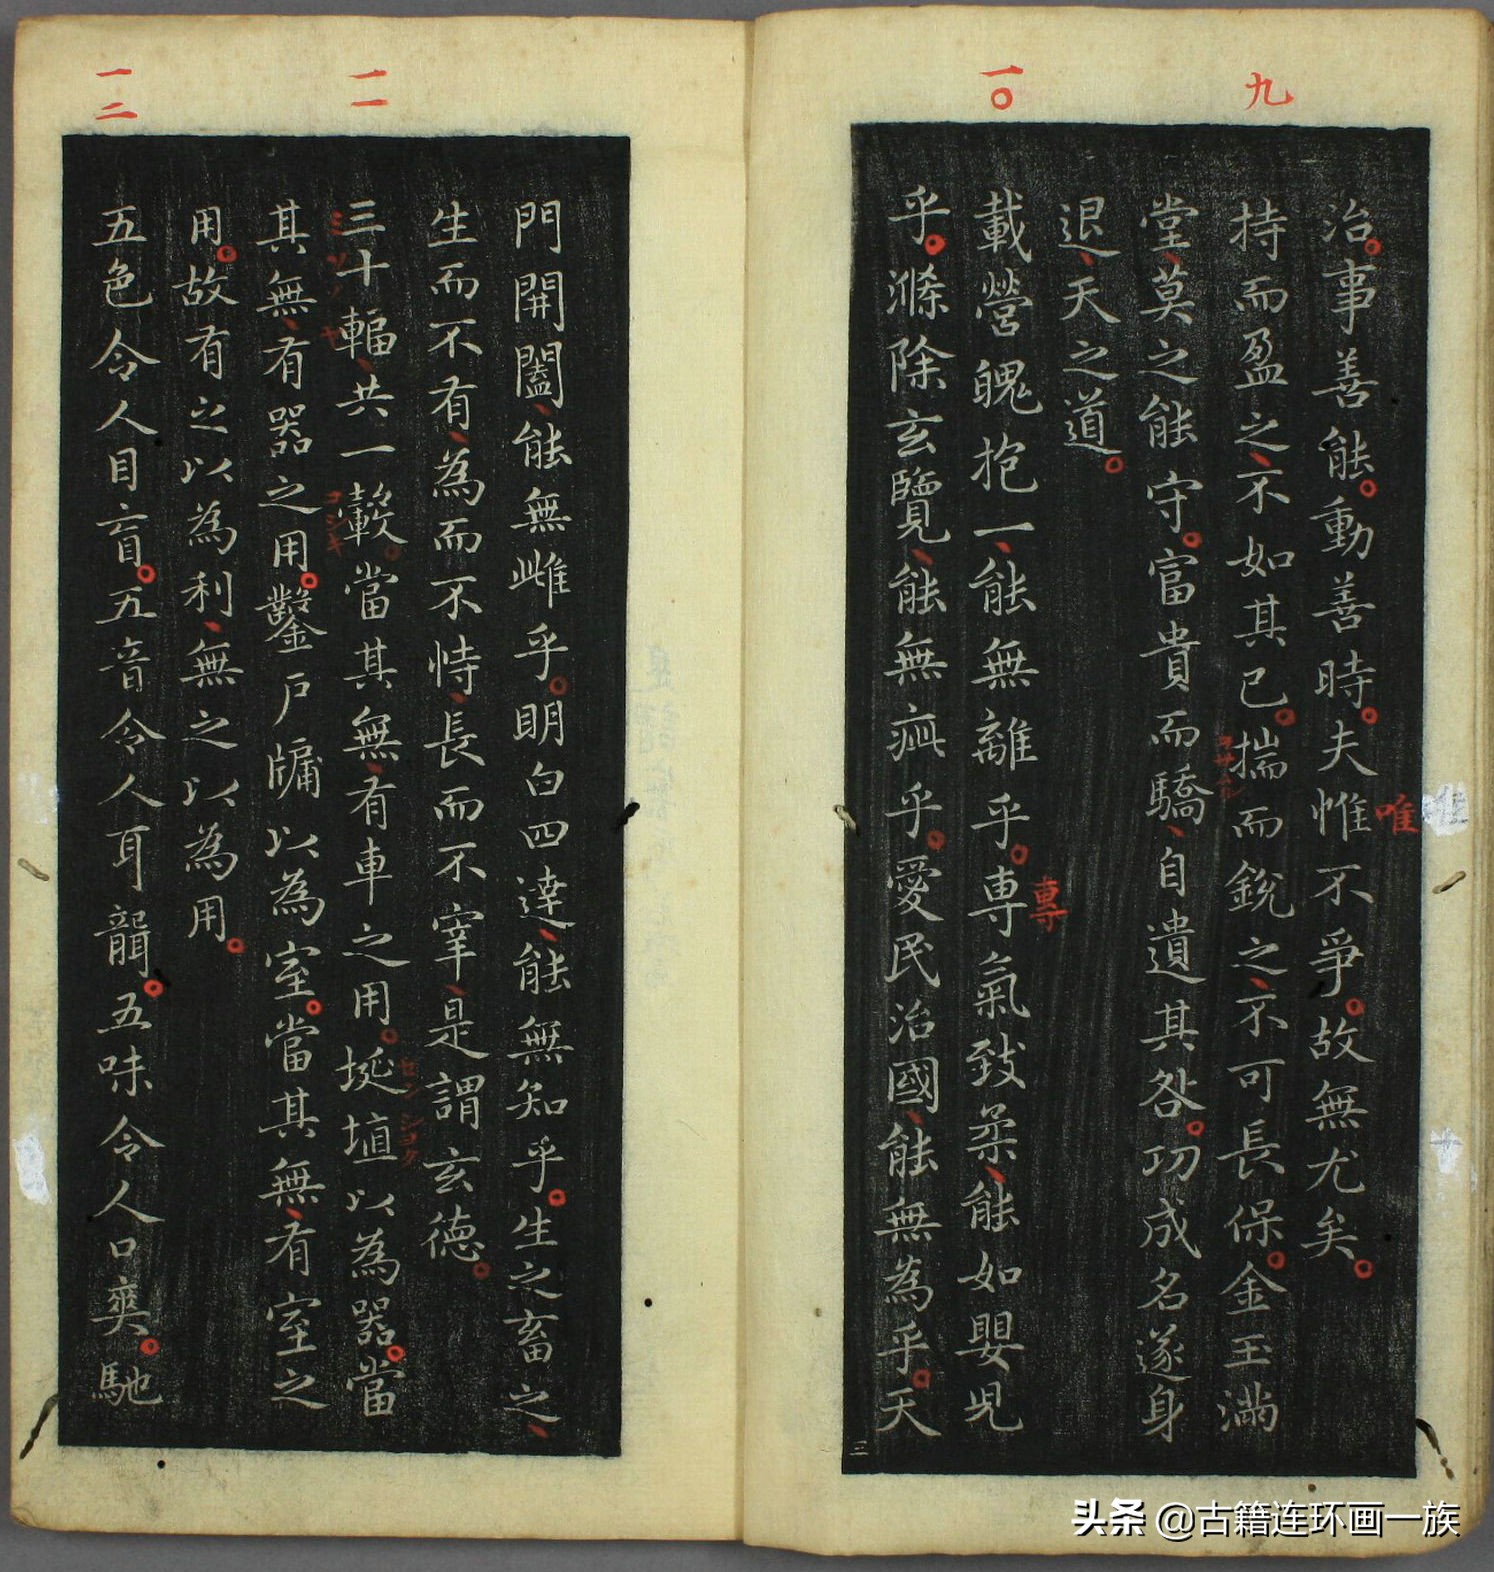 九
一〇
治。事善能。動善時。夫惟不爭。故無尤矣。
唯
持而盈之、不如其已。揣而銳之、不可長保。金玉滿
堂、莫之能守。富貴而驕、自遺其咎。功成名遂身
退、天之道。
載營魄抱一、能無離乎。専氣致柔、能如嬰児
專
乎。滌除玄覽、能無疵乎。愛民治國、能無為乎。天
三
一一
一二
門開闔、能無雌乎。明白四達、能無知乎。生之畜之、
生而不有、為而不恃、長而不宰、是謂玄德。
三十輻、共一轂。當其無、有車之用。埏埴以為器。當
ミソノヤ
コシキ
其無、有器之用。鑿戸牖以為室。當其無、有室之
用。故有之以為利、無之以為用。
五色令人目盲。五音令人耳聾。五味令人口爽。馳
头条 @古籍连环画一族